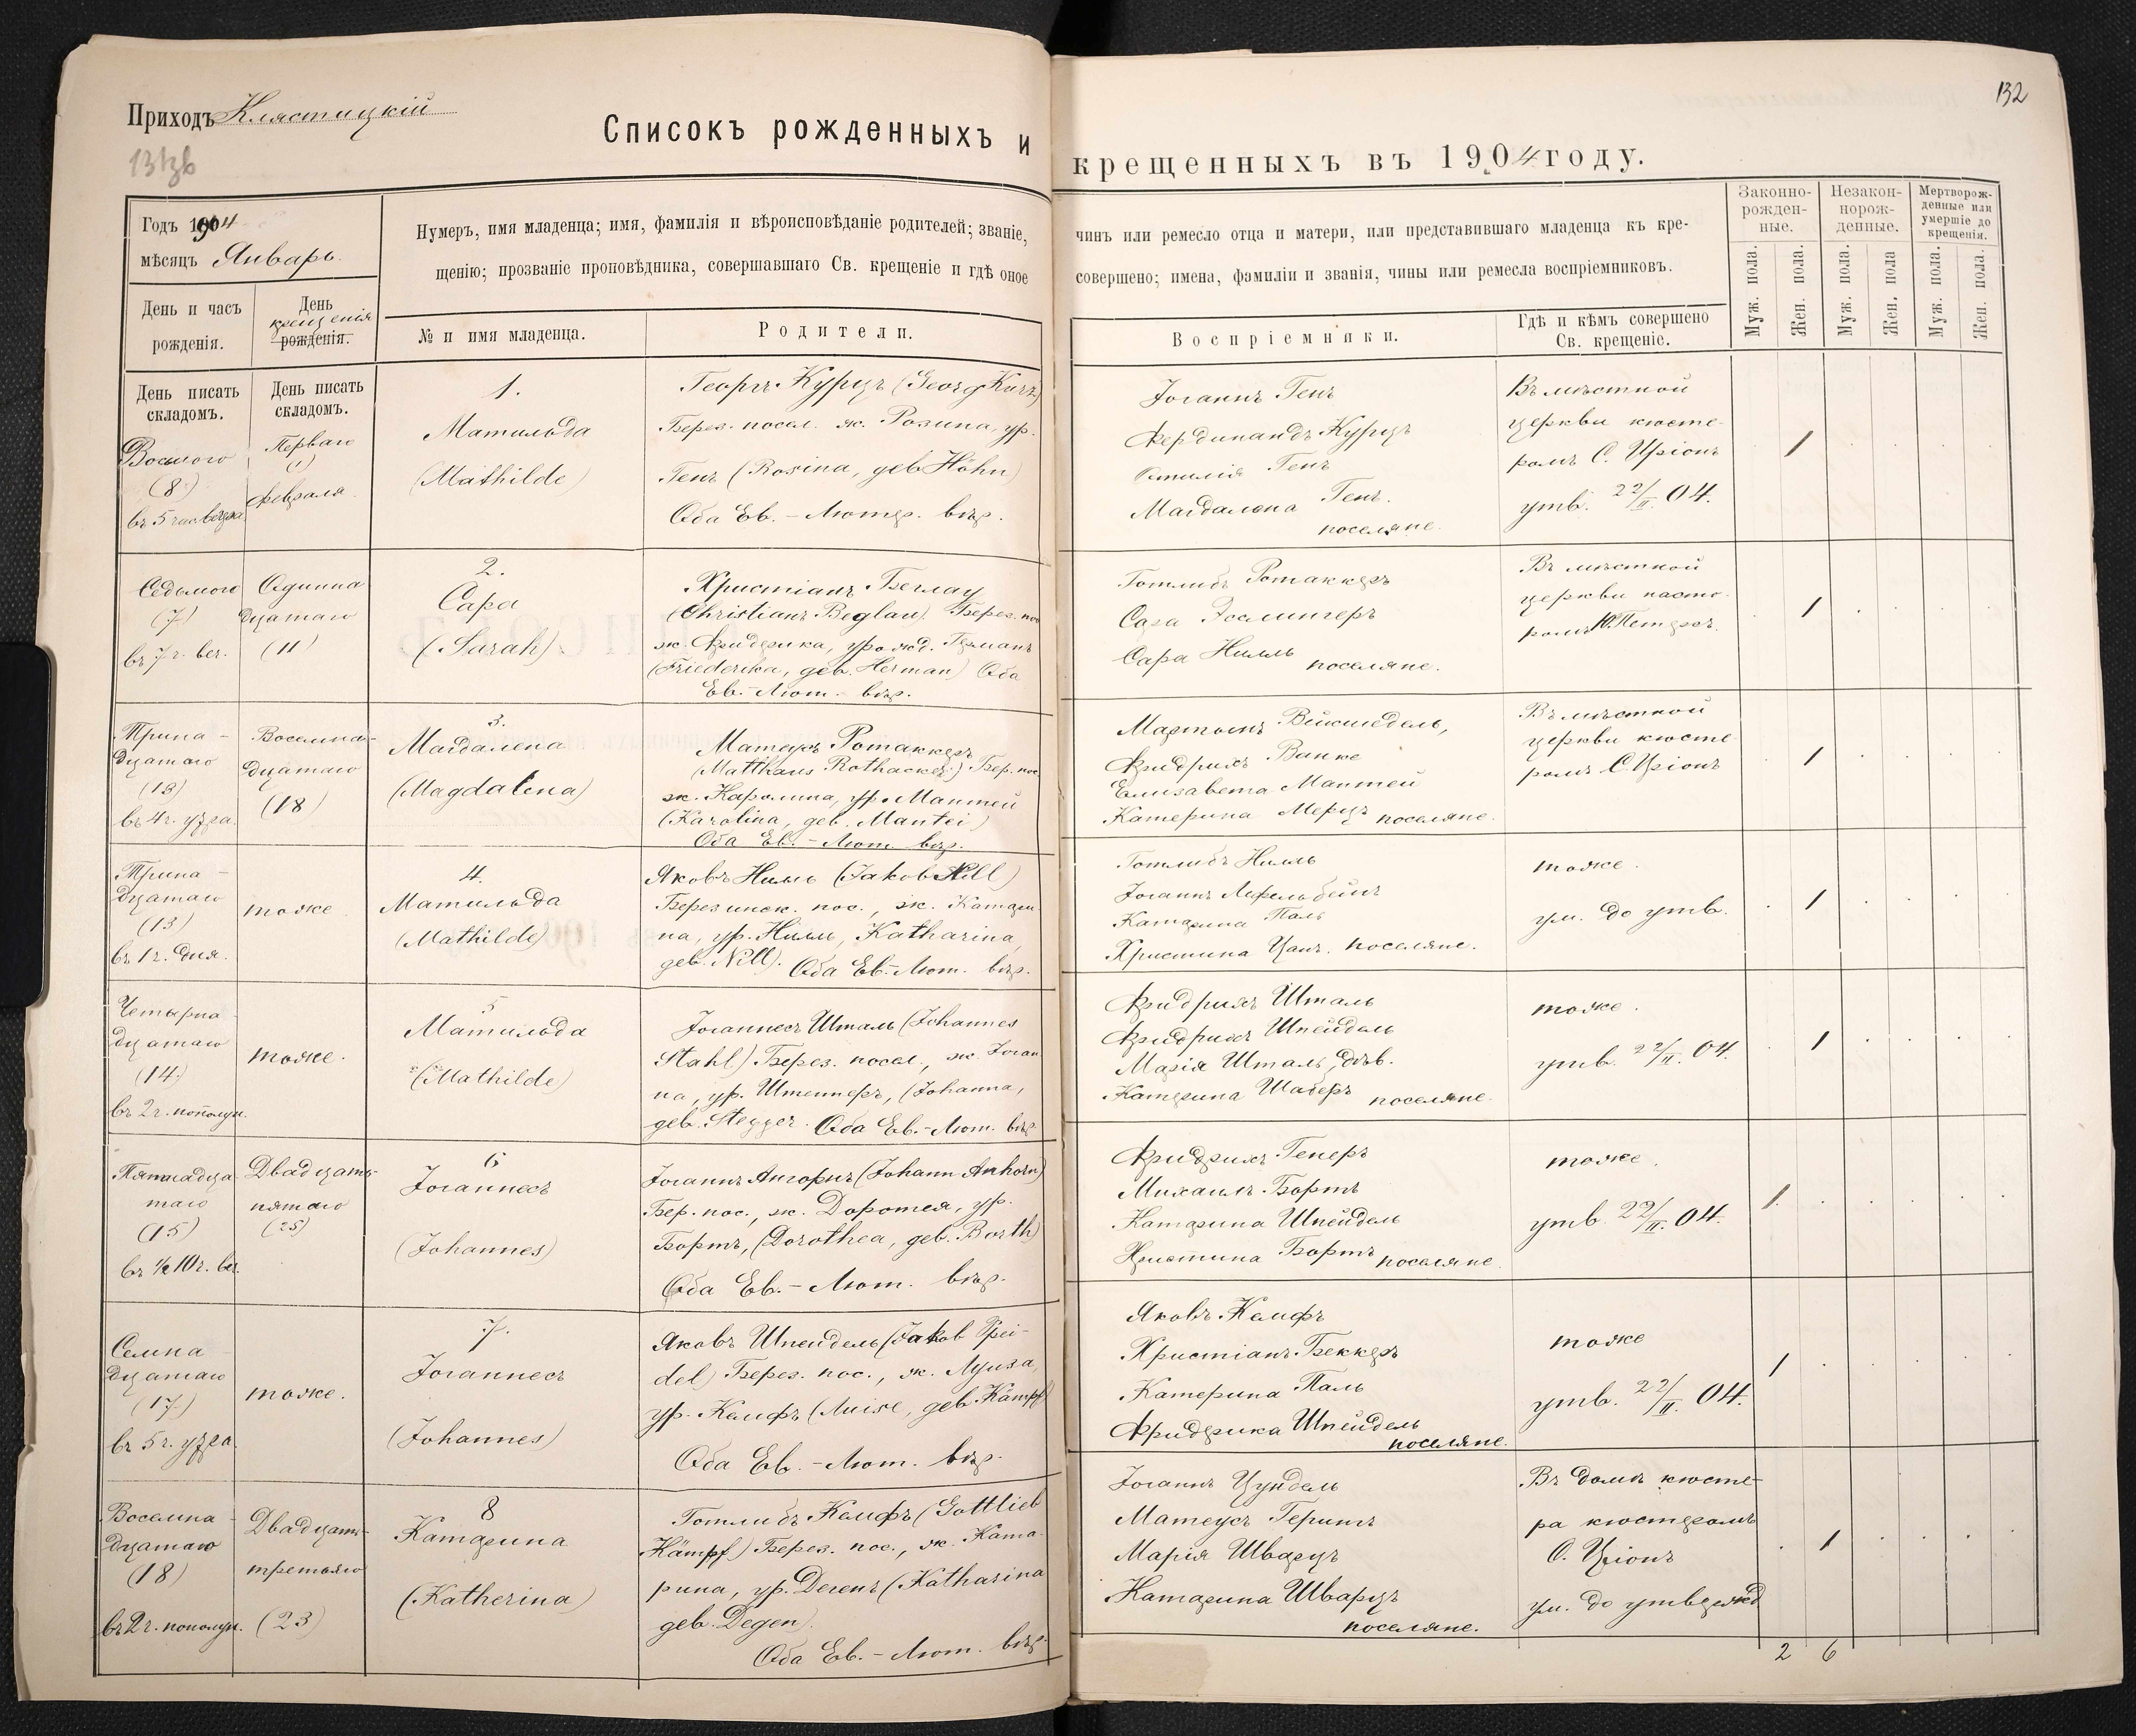 Приходъ Клястицкій
Списокъ рожденныхъ и крещенныхъ въ 1904 году.
132
Годъ 1904
мѣсяцъ Январь.
Нумеръ, имя младенца; имя, фамилія и вѣроисповѣданіе родителей; званіе, чинъ или ремесло отца и матери, или представившаго младенца къ кре-
щенію; прозваніе проповѣдника, совершавшаго Св. крещеніе и гдѣ оное совершено; имена, фамиліи и званія, чины или ремесла воспріемниковъ.
Законно-
рожден-
ные.
Незакон-
норож-
денные.
Мертворож-
денные или
умершіе до
крещенія.
День и часъ
рожденія.
День
крещенія
рожденія.
№ и имя младенца.
Родители.
Воспріемники.
Гдѣ и кѣмъ совершено
Св. крещеніе.
Муж. пола.
Жен. пола.
Муж. пола.
Жен. пола
Муж. пола.
Жен. пола.
День писать
складомъ.
День писать
складомъ.
Восьмого
(8)
въ 5 час. вечера
Перваго
(1)
февраля
1.
Матильда
(Mathilde)
Георгъ Курцъ (Georg Kurz)
Берез. посел. ж. Розина, ур.
Генъ (Rosina, geb. Höhn)
Оба Ев. - Лютер. вѣр.
Іоганнъ Генъ
Фердинандъ Курцъ
Отилія Генъ
Магдалена Генъ.
поселяне.
Въ мѣстной
церкви кюсте-
ромъ С. Цріонъ
утв. 22/II. 04.
1
Седьмого
(7)
въ 7 ч. веч.
Одинна
дцатаго
(11)
2.
Сара
(Sarah)
Христіанъ Беглау
(Christian Beglau) Берез. пос
ж. Фридерика, урожд. Германъ
(Friederika, geb. Herman) Оба
Ев.-Лют. вѣр.
Готлибъ Ротаккеръ
Сара Эсслингеръ
Сара Нилль
поселяне.
Въ мѣстной
церкви пасто-
ромъ Ю. Петерсъ.
1
Трина-
дцатаго
(13)
въ 4 ч. утра.
Восемна-
дцатаго
(18)
3.
Магдалена
(Magdalena)
Матеусъ Ротаккеръ
(Matthäus Rothacker) Бер. пос.
ж. Каролина, ур. Мантей
(Karolina, geb. Mantei)
Оба Ев. - Лют. вѣр.
Мартынъ Вейспедель,
Фридрихъ Ванке
Елизавета Мантей
Катерина Мерцъ поселяне.
Въ мѣстной
церкви кюсте-
ромъ С. Цріонъ
1
Трина-
дцатаго
(13)
въ 1 ч. дня.
тоже
4.
Матильда
(Mathilde)
Яковъ Нилль (Jakob Nill)
Березинск. пос., ж. Катери-
на, ур. Нилль, Katharina,
geb. Nill). Оба Ев.-Лют. вѣр.
Готлибъ Нилль
Іоганнъ Лефельбейнъ
Катерина Паль
Христина Цанъ. поселяне.
тоже.
ум. до утв.
1
Четырна-
дцатаго
(14)
въ 2 ч. пополун.
тоже.
5
Матильда
(Mathilde)
Іоганнесъ Шталь (Johannes
Stahl) Берез. посел., ж. Іоган
на, ур. Штеггеръ, (Johanna,
geb. Stegger. Оба Ев.-Лют. вѣр.
Фридрихъ Шталь
Фридрихъ Шпейдель
Марія Шталь, дѣв.
Катерина Шаберъ поселяне.
тоже.
утв. 22/II. 04.
1
Пятнадца
таго
(15)
въ ½ 10 ч. веч.
Двадцать-
пятаго
(25)
6
Іоганнесъ
(Johannes)
Іоганнъ Ангорнъ (Johann Anhorn)
Бер. пос., ж. Доротея, ур.
Бортъ, (Dorothea, geb. Borth)
Оба Ев. - Лют. вѣр.
Фридрихъ Геперъ
Михаилъ Бортъ
Катерина Шпейдель
Христина Бортъ поселяне.
тоже.
утв. 22/II. 04.
1.
Семна-
дцатаго
(17)
въ 5 ч. утра.
тоже.
7.
Іоганнесъ
(Johannes)
Яковъ Шпейдель (Jakob Spei-
del) Берез. пос., ж. Луиза,
ур. Кемфъ (Luise, geb. Kämpf)
Оба Ев. - Лют. вѣр.
Яковъ Кемфъ
Христіанъ Беккеръ
Катерина Паль
Фридерика Шпейдель
поселяне.
тоже
утв. 22/II. 04.
1
Восемна-
дцатаго
(18)
въ 2 ч. пополун.
Двадцать-
третьяго
(23)
8
Катарина
(Katherina)
Готлибъ Кемфъ (Gottlieb
Kämpf) Берез. пос., ж. Ката-
рина, ур. Дегенъ (Katharina
geb. Degen)
Оба Ев. - Лют. вѣр.
Іоганнъ Цундель
Матеусъ Герингъ
Марія Шварцъ
Катарина Шварцъ
поселяне.
Въ домѣ кюсте-
ра кюстеромъ
С. Цріонъ
ум. до утвержд
1
2 6